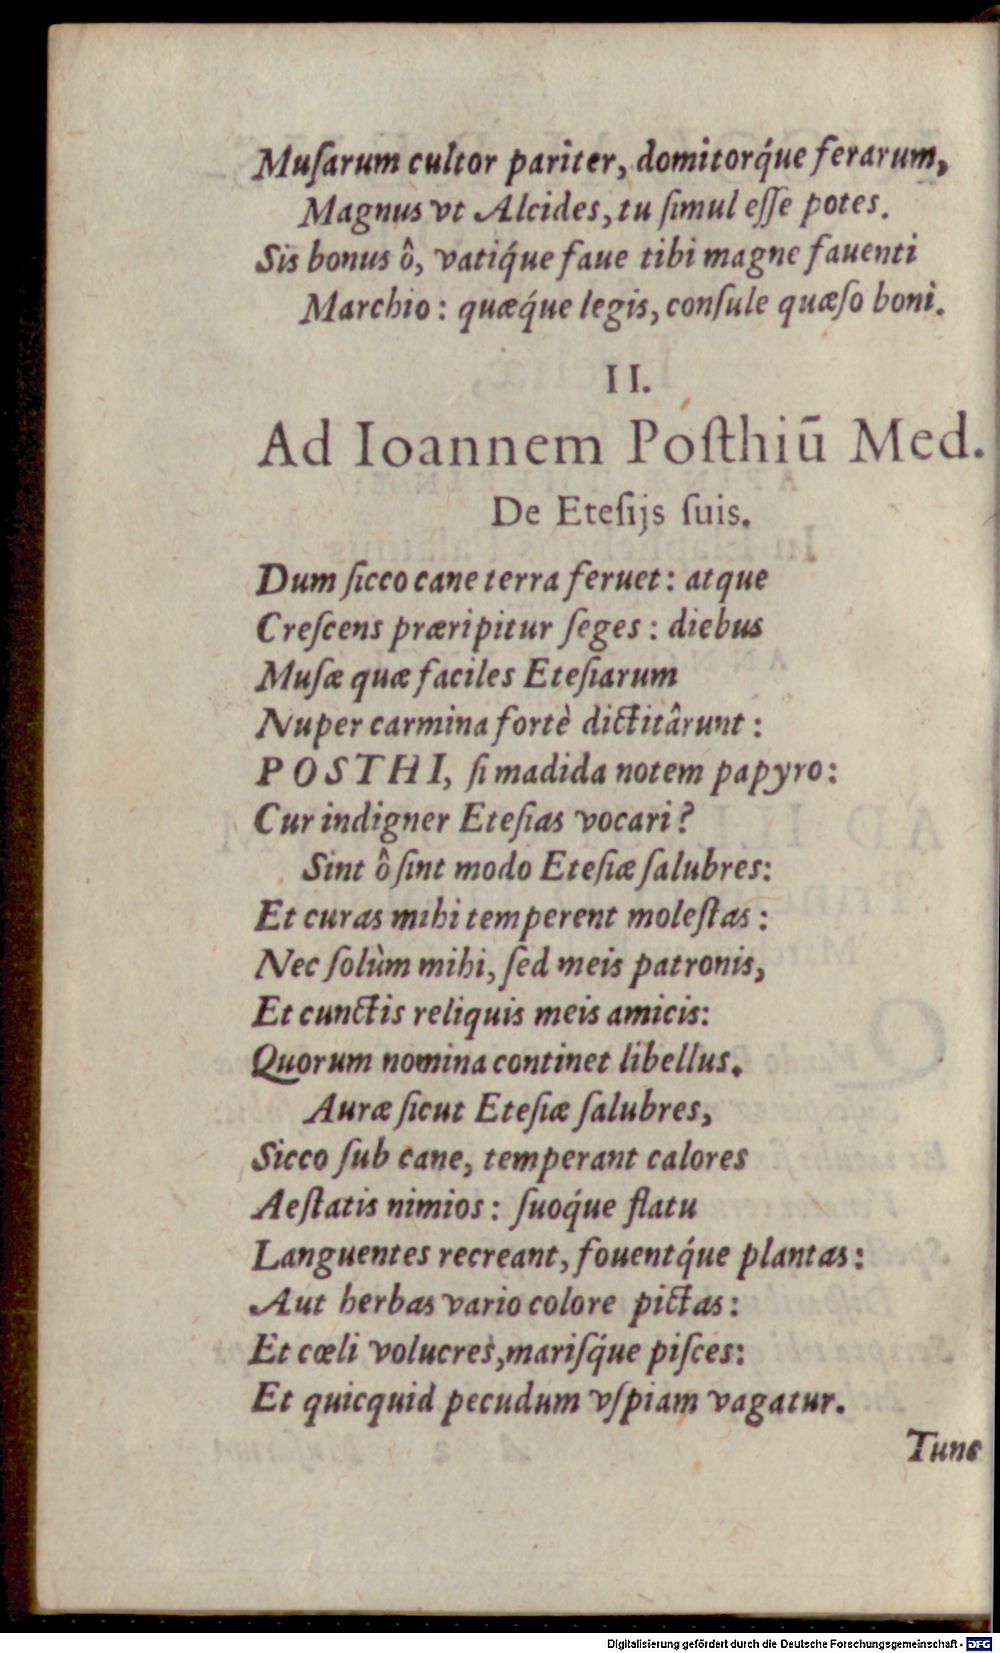 Muſarum cultor pariter, domitorq́ue ferarum,
Magnus vt Alcides, tu ſimul eſſe potes.
Sis bonus ô, vatiq́ue faue tibi magne fauenti
Marchio: quæq́ue legis, conſule quæſo boni.
II.
Ad Ioannem Poſthiū Med.
De Eteſijs ſuis.
Dum ſicco cane terra feruet: atque
Creſcens præripitur ſeges: diebus
Muſæ quæ faciles Eteſiarum
Nuper carmina fortè dictitârunt:
POSTHI, ſi madida notem papyro:
Cur indigner Eteſias vocari?
Sint ô ſint modo Eteſiæ ſalubres:
Et curas mihi temperent moleſtas:
Nec ſolùm mihi, ſed meis patronis,
Et cunctis reliquis meis amicis:
Quorum nomina continet libellus.
Auræ ſicut Eteſiæ ſalubres,
Sicco ſub cane, temperant calores
Aeſtatis nimios: ſuoq́ue flatu
Languentes recreant, fouentq́ue plantas:
Aut herbas vario colore pictas:
Et cœli volucres, mariſq́ue piſces:
Et quicquid pecudum vſpiam vagatur.
Tunc
Digitalisierung gefördert durch die Deutsche Forschungsgemeinschaft - DFG